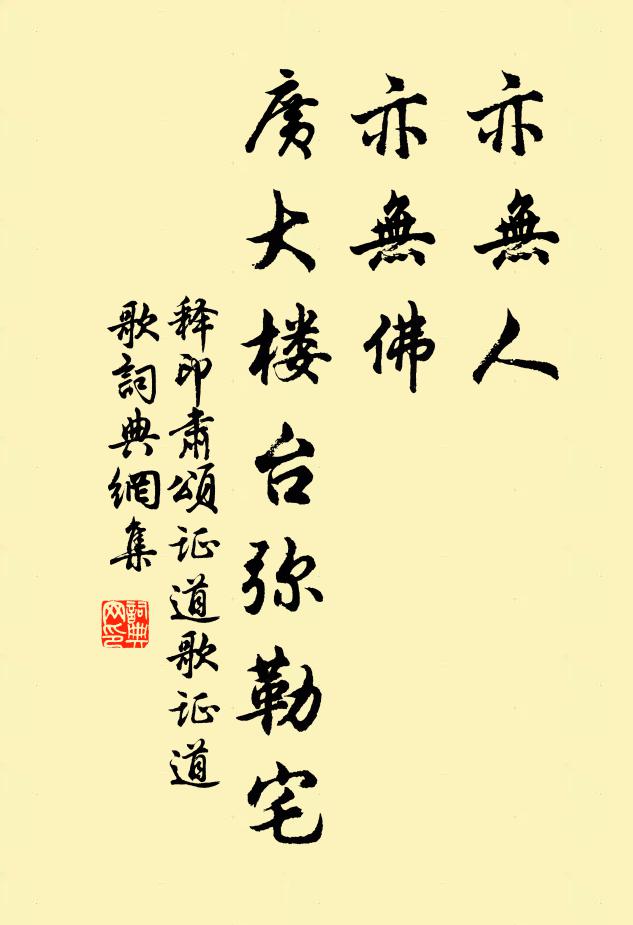 亦無人
亦無佛
廣大楼台弥勒宅
释印肃頌证道歌证道
歌詞典網集
詞典
网印